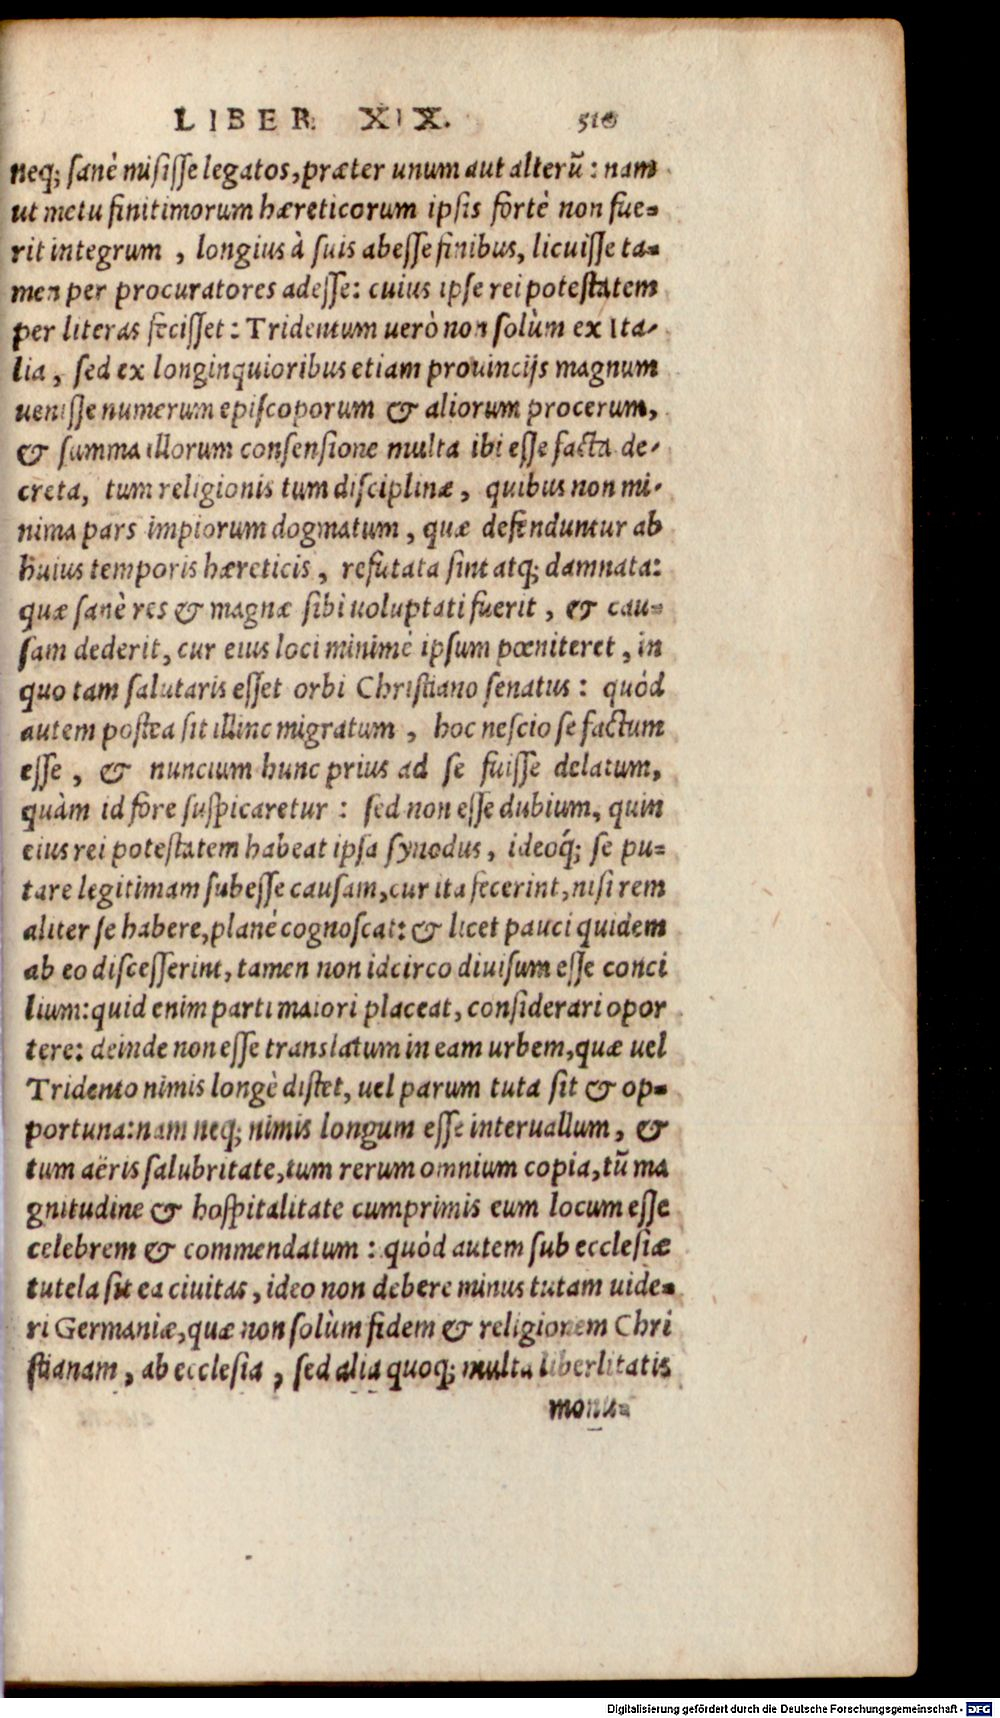 LIBER XIX.
neq; sanè misisse legatos, præter unum aut alterũ: nam
ut metu finitimorum hæreticorum ipsis fortè non fue-
rit integrum, longius à suis abesse finibus, licuisse ta-
men per procuratores adesse: cuius ipse rei potestatem
per literas fecisset: Tridentum uerò non solùm ex Ita-
lia, sed ex longinquioribus etiam prouincijs magnum
uenisse numerum episcoporum & aliorum procerum,
& summa illorum consensione multa ibi esse facta de-
creta, tum religionis tum disciplinæ, quibus non mi-
nima pars impiorum dogmatum, quæ defenduntur ab
huius temporis hæreticis, refutata sint atq; damnata:
quæ sanè res & magnæ sibi uoluptati fuerit, & cau-
sam dederit, cur eius loci minimè ipsum pœniteret, in
quo tam salutaris esset orbi Christiano senatus: quòd
autem postea sit illinc migratum, hoc nescio se factum
esse, & nuncium hunc prius ad se fuisse delatum,
quàm id fore suspicaretur: sed non esse dubium, quin
eius rei potestatem habeat ipsa synodus, ideoq́; se pu-
tare legitimam subesse causam, cur ita fecerint, nisi rem
aliter se habere, planè cognoscat: & licet pauci quidem
ab eo discesserint, tamen non idcirco diuisum esse conci
lium: quid enim parti maiori placeat, considerari opor
tere: deinde non esse translatum in eam urbem, quæ uel
Tridento nimis longè distet, uel parum tuta sit & op-
portuna: nam neq; nimis longum esse interuallum, &
tum aëris salubritate, tum rerum omnium copia, tũ ma
gnitudine & hospitalitate cumprimis eum locum esse
celebrem & commendatum: quòd autem sub ecclesiæ
tutela sit ea ciuitas, ideo non debere minus tutam uide-
ri Germaniæ, quæ non solùm fidem & religionem Chri
stianam, ab ecclesia, sed alia quoq; multa liberlitatis
monu-
Digitalisierung gefördert durch die Deutsche Forschungsgemeinschaft - DFG